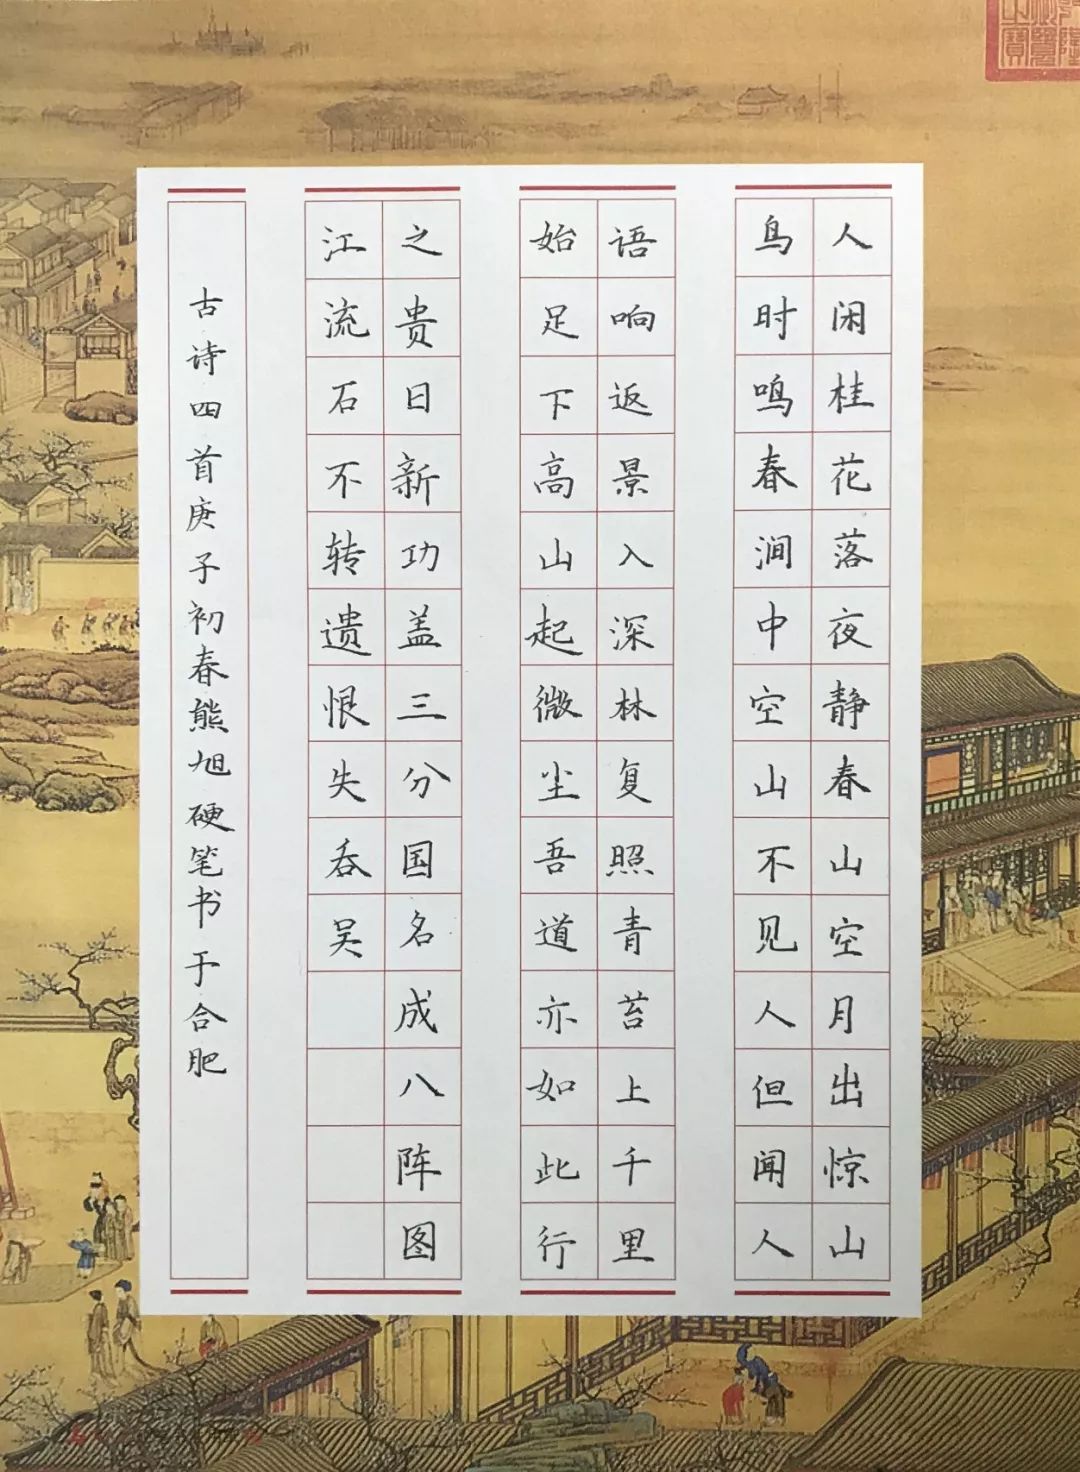 人闲桂花落夜静春山空月出惊山
鸟时鸣春涧中空山不见人但闻人
语响返景入深林复照青苔上千里
始足下高山起微尘吾道亦如此行
之贵日新功盖三分国名成八阵图
江流石不转遗恨失吞吴
古诗四首庚子初春熊旭硬笔书于合肥